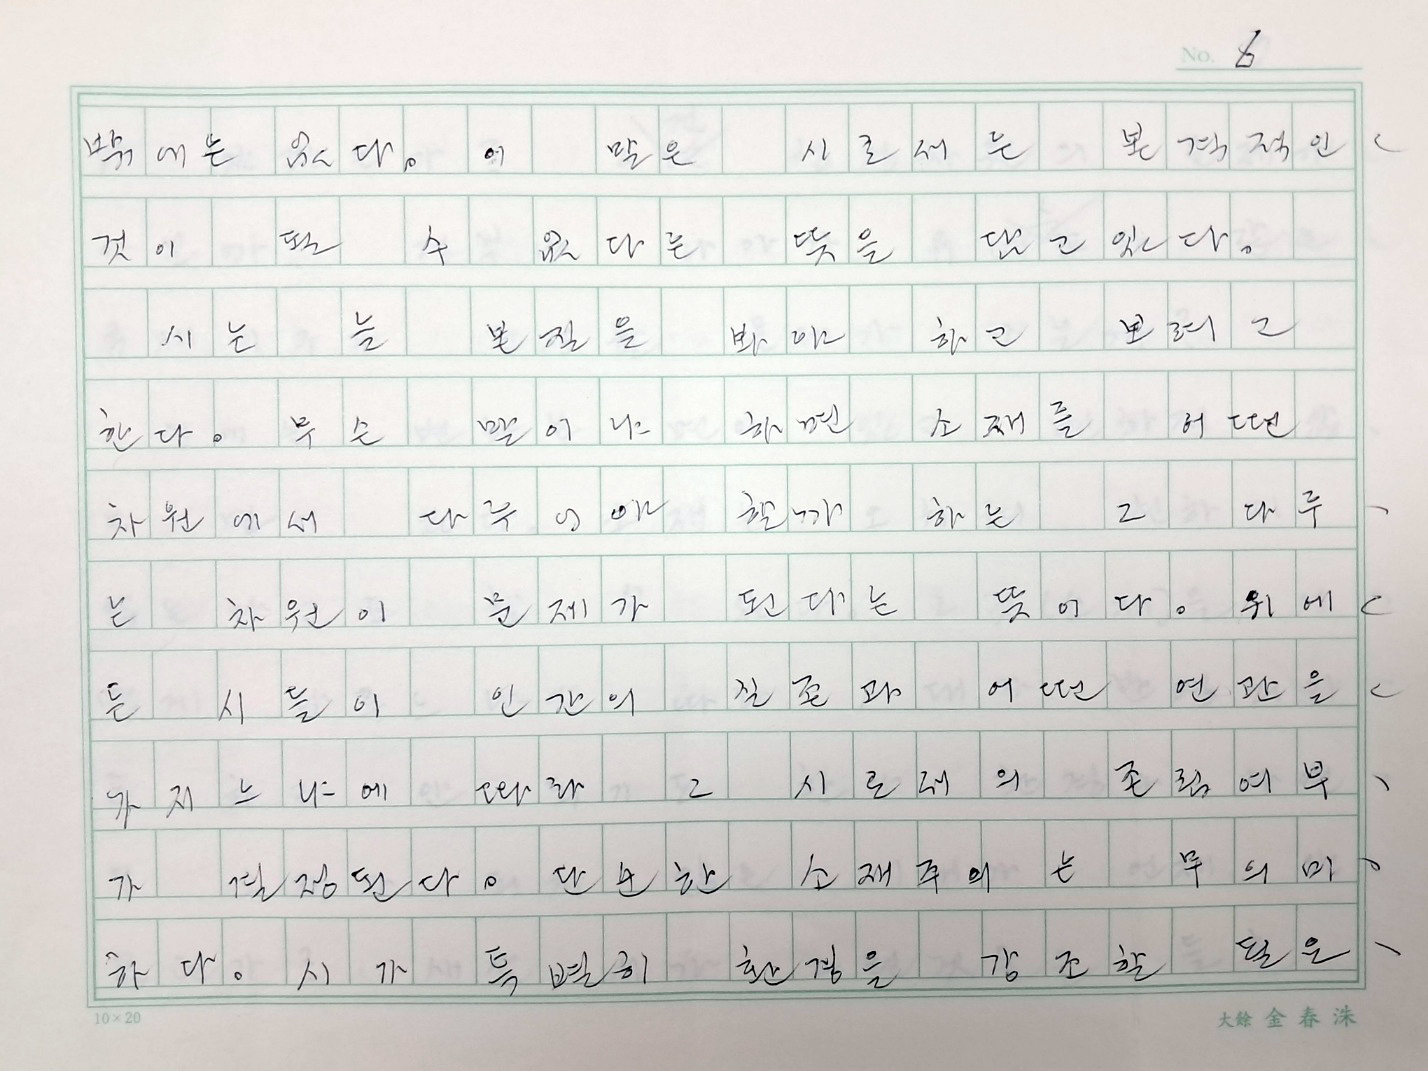 No. 6
밖에는 없다. 이 말은 시로서는 본격적인
것이 될 수 없다는 뜻을 담고 있다.
시는 늘 본질을 봐야 하고 보려고
한다. 무슨 말이냐 하면 소재를 어떤
차원에서 다루어야 할까 하는 그 다루
는 차원이 문제가 된다는 뜻이다. 위에
든 시들이 인간의 실존과 어떤 연관을
가지느냐에 따라 그 시로서의 존립여부
가 결정된다. 단순한 소재주의는 무의미
하다. 시가 특별히 환경을 강조할 필은
10×20
大餘 金春洙